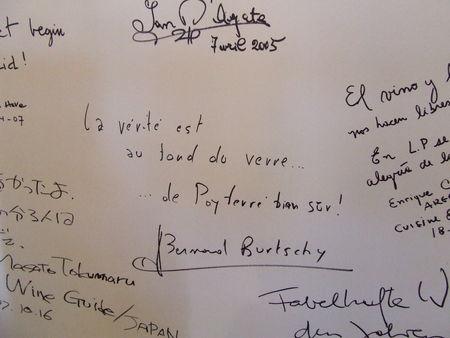 Ian D'Agata
7 avril 2005
t begin
id!
La vérité est
au fond du verre...
... de Poyferré bien sûr!
Bernard Burtschy
El vino y l
nos hacen libres
En L.P se
alegria de la
Enrique C
Cuisine &
18-
かったよ
Masato Tokumaru
Wine Guide/JAPAN
.10.16
Fabelhafte
den Jahren